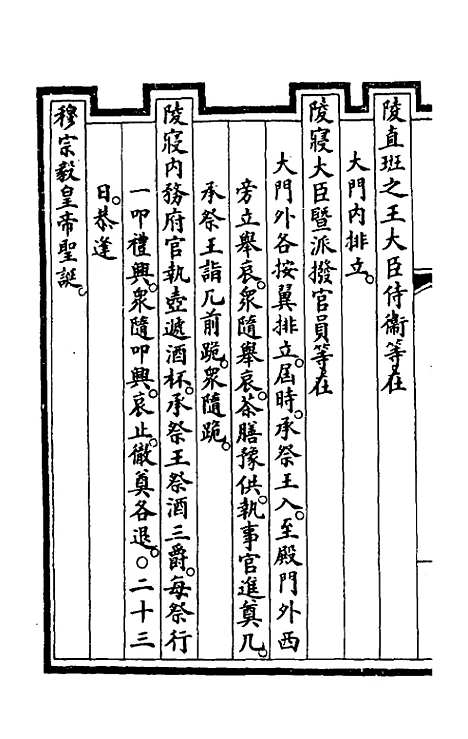 陵直班之王大臣侍衞等在
大門內排立。
陵寢大臣暨派撥官員等在
大門外各按翼排立。屆時。承祭王入。至殿門外西
旁立舉哀。衆隨舉哀。茶膳豫供。執事官進奠几。
承祭王詣几前跪。衆隨跪。
陵寢內務府官執壺遞酒杯。承祭王祭酒三爵。每祭行
一叩禮興。衆隨叩興。哀止。徹奠各退。○二十三
日。恭逢
穆宗毅皇帝聖誕。